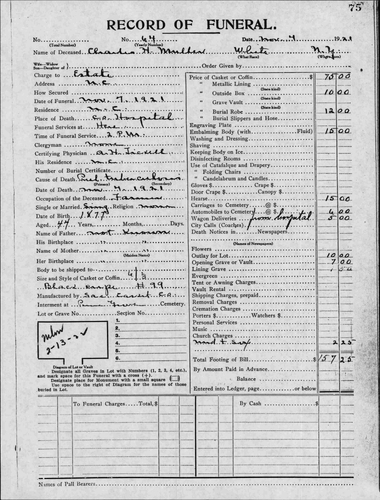 75
RECORD OF FUNERAL.
No. No. 64 Date Nov. 7 1921
(Total Number) (Yearly Number)
Name of Deceased Charles H. White N.Y.
(What Race) (Where Born)
Order Given by
Charge to Estate
Address
How Secured
Date of Funeral Nov. 7 1921
Residence
Place of Death Co. Hospital
Funeral Services at Here
Time of Funeral Service 2 P.M.
Clergyman none
Certifying Physician
His Residence
Number of Burial Certificate
Cause of Death
Date of Death Nov. 1921
Occupation of the Deceased Farmer
Single or Married Religion
Date of Birth 1877
Aged 44 Years, Months, Days.
Name of Father not known
His Birthplace
Name of Mother
(Maiden Name)
Her Birthplace
Body to be shipped to
Size and Style of Casket or Coffin 6/3
Black crape
Manufactured by Sac. Casket Co.
Interment at Cemetery.
Lot or Grave No. Section No.
1.
2.
3.
4.
5.
6.
2-13-22
Diagram of Lot or Vault
Designate all Graves in Lot with Numbers (1, 2, 3, 4, etc.) and mark space for this Funeral with a cross (+).
Designate place for Monument with a small square
Use space to right of Diagram for the names of those buried in Lot.
Price of Casket or Coffin 75 00
Metallic Lining
Outside Box 10 00
Grave Vault
Burial Robe 12 00
Burial Slippers and Hose
Engraving Plate
Embalming Body (with Fluid) 15 00
Shaving
Keeping Body on Ice
Disinfecting Rooms
Use of Catafalque and Drapery
" Folding Chairs
" Candelabrum and Candles
Gloves $ Crape $
Door Crape Canopy $
Hearse 15 00
Carriages to Cemetery @ $
Automobiles to Cemetery @ $ 6 00
Wagon Deliveries from hospital 5 00
City Calls (Coaches)
Death Notices in Newspapers
(Names of Newspapers)
Flowers
Outlay for Lot 10 00
Opening Grave or Vault 7 00
Lining Grave
Evergreen
Tent or Awning Charges
Vault Rental
Shipping Charges, prepaid
Removal Charges
Cremation Charges
Porters $ Watchers $
Personal Services
Music
Church Charges
2 25
Total Footing of Bill $ 157 25
By Amount Paid in Advance
Balance
Entered into Ledger, page or below
To Funeral Charges Total $
By Cash $
Names of Pall Bearers.